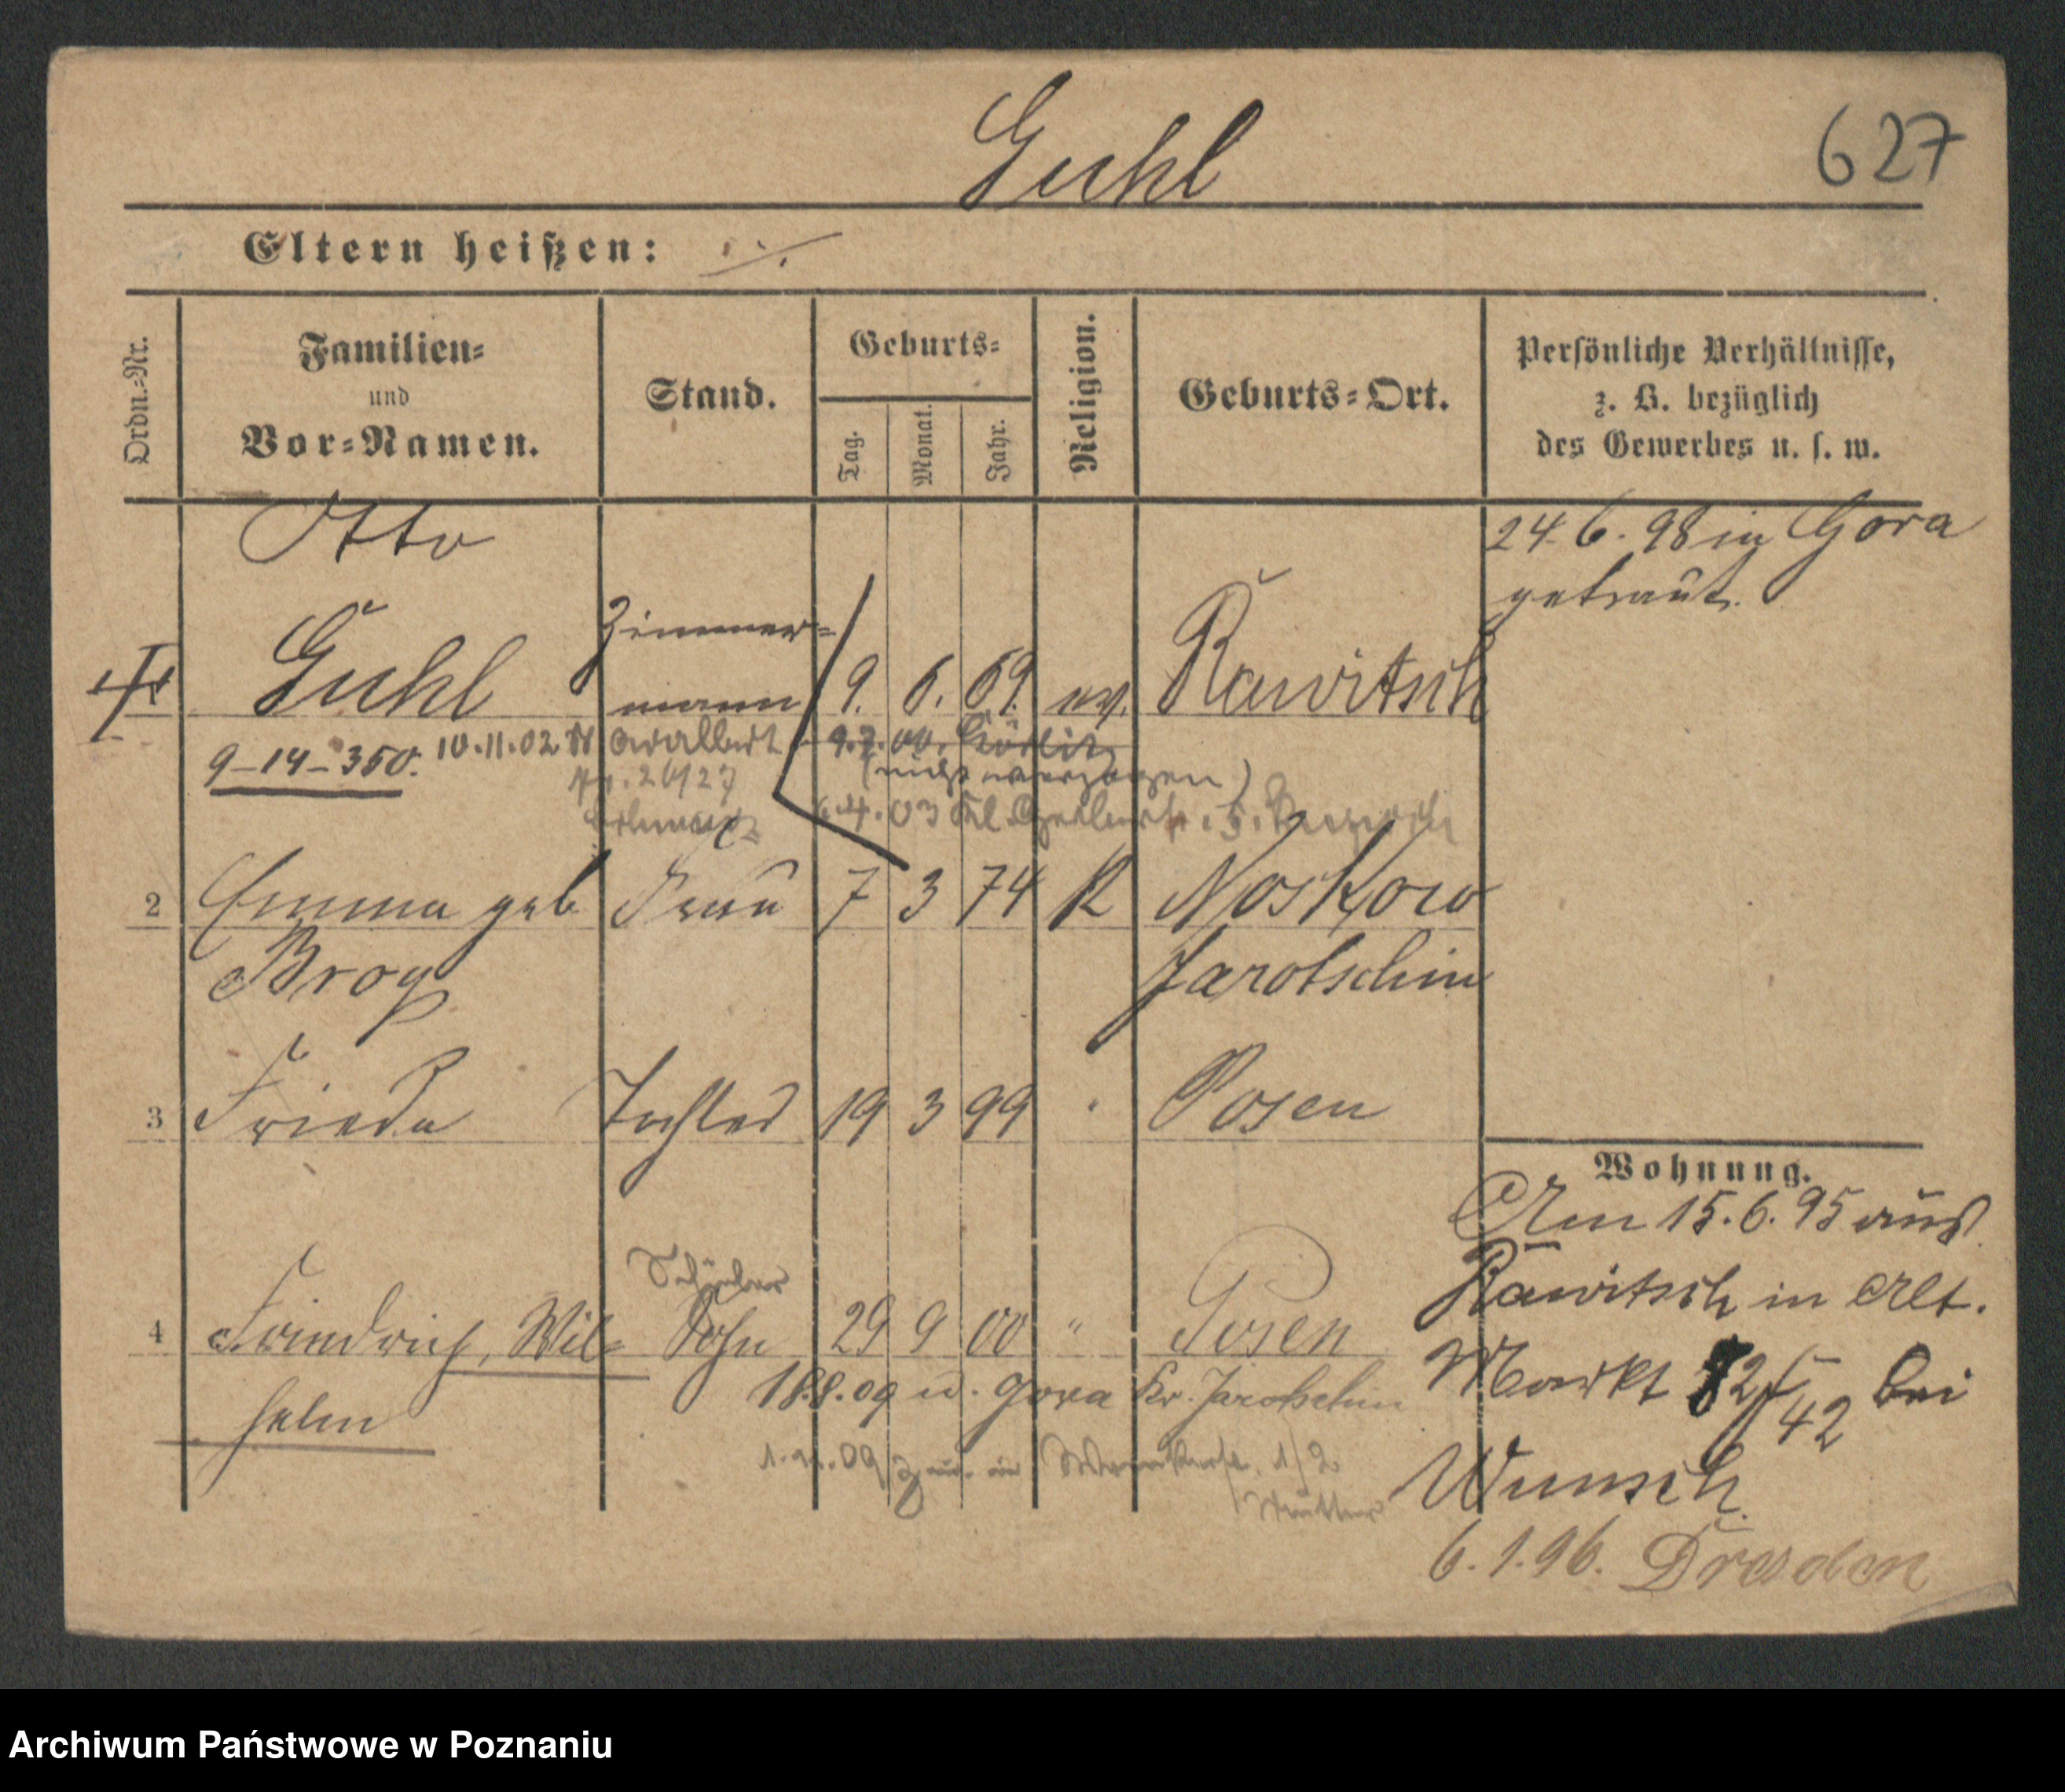 Guhl
627
Eltern heißen: ·/.
Ordn.-Nr.
Familien-
und
Vor-Namen.
Stand.
Geburts-
Tag.
Monat.
Jahr.
Religion.
Geburts-Ort.
Persönliche Verhältnisse,
z. B. bezüglich
des Gewerbes u. s. w.
Otto
Guhl Zimmer-
mann 9. 6. 69. ev. Rawitsch
24.6.98 in Gora
getraut.
9-14-350. 10.11.02 St Adalbert 9.7.00. Görlitz
(nicht verzogen)
6.4.03 Kl. Gerberstr. 5.
2 Emma geb Frau 7 3 74 K Noskow
Brog Jarotschin
3 Frieda Tochter 19 3 99 " Posen
Schüler
4 Friedrich, Wil- Sohn 29 9 00 " Posen
helm
18.8.09 n. Gora Kr. Jarotschin
09 zur. in 1/2
Mutter
Wohnung.
Am 15.6.95 aus
Rawitsch in Alt.
Markt 82 42 bei
Wunsch.
6.1.96. Dresden
Archiwum Państwowe w Poznaniu